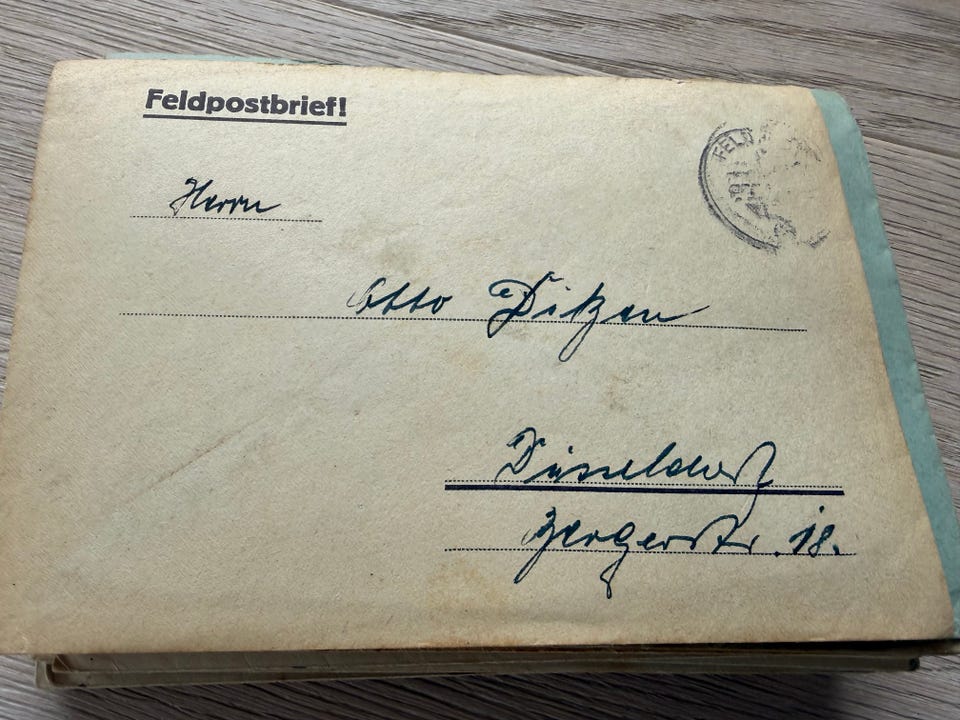 Feldpostbrief!
FELD
Herrn
Otto Ditzen
Düsseldorf
18.